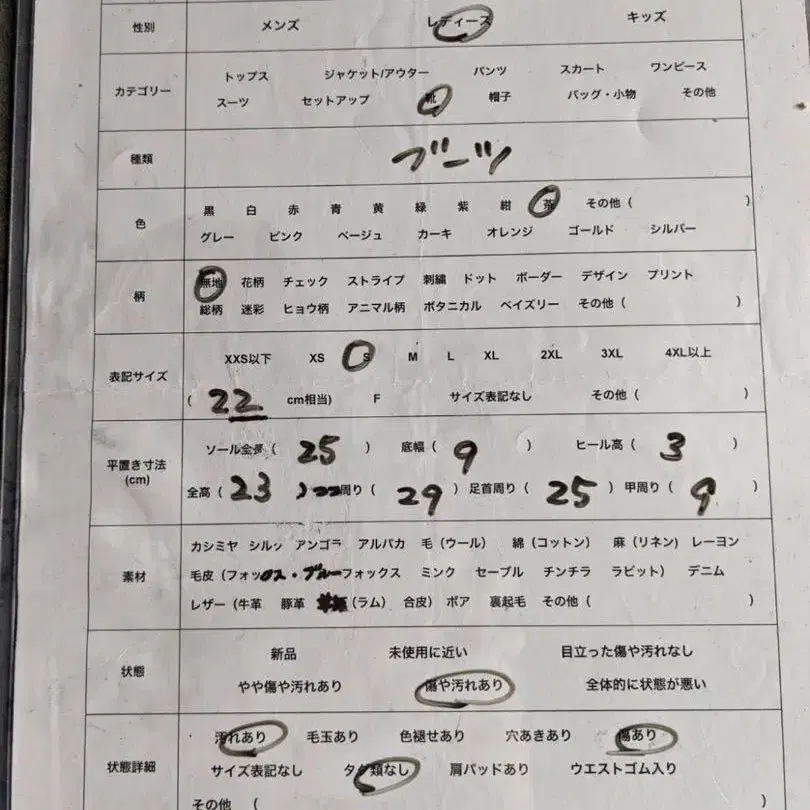 性別 メンズ レディース キッズ
カテゴリー トップス ジャケット/アウター パンツ スカート ワンピース
スーツ セットアップ 靴 帽子 バッグ・小物 その他
種類 ブーツ
色 黒 白 赤 青 黄 緑 紫 紺 茶 その他 ( )
グレー ピンク ベージュ カーキ オレンジ ゴールド シルバー
柄 無地 花柄 チェック ストライプ 刺繍 ドット ボーダー デザイン プリント
総柄 迷彩 ヒョウ柄 アニマル柄 ボタニカル ペイズリー その他 ( )
表記サイズ XXS以下 XS S M L XL 2XL 3XL 4XL以上
( 22 cm相当) F サイズ表記なし その他 ( )
平置き寸法 (cm) ソール全長 ( 25 ) 底幅 ( 9 ) ヒール高 ( 3 )
全高 ( 23 ) 周り ( 29 ) 足首周り ( 25 ) 甲周り ( 9 )
素材 カシミヤ シルク アンゴラ アルパカ 毛 (ウール) 綿 (コットン) 麻 (リネン) レーヨン
毛皮 (フォックス・ブルーフォックス ミンク セーブル チンチラ ラビット) デニム
レザー (牛革 豚革 (ラム) 合皮) ボア 裏起毛 その他 ( )
状態 新品 未使用に近い 目立った傷や汚れなし
やや傷や汚れあり 傷や汚れあり 全体的に状態が悪い
状態詳細 汚れあり 毛玉あり 色褪せあり 穴あきあり 傷あり
サイズ表記なし タグ類なし 肩パッドあり ウエストゴム入り
その他 ( )